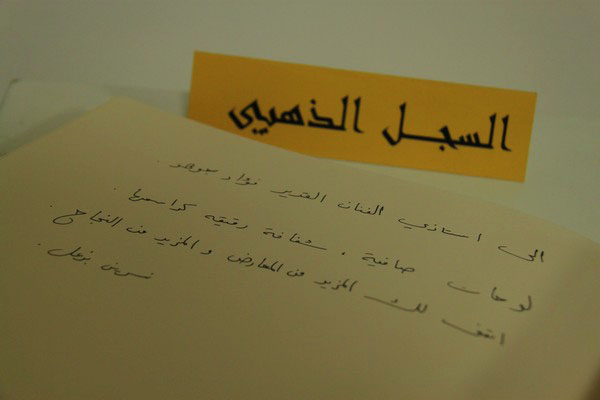 السجل الذهبي
الى استاذي الفنان القدير فؤاد
لوحات صافية ، شفافة رقيقة كراسمها .
اتمنى لك المزيد من المعارض والمزيد من النجاح .
نسرين